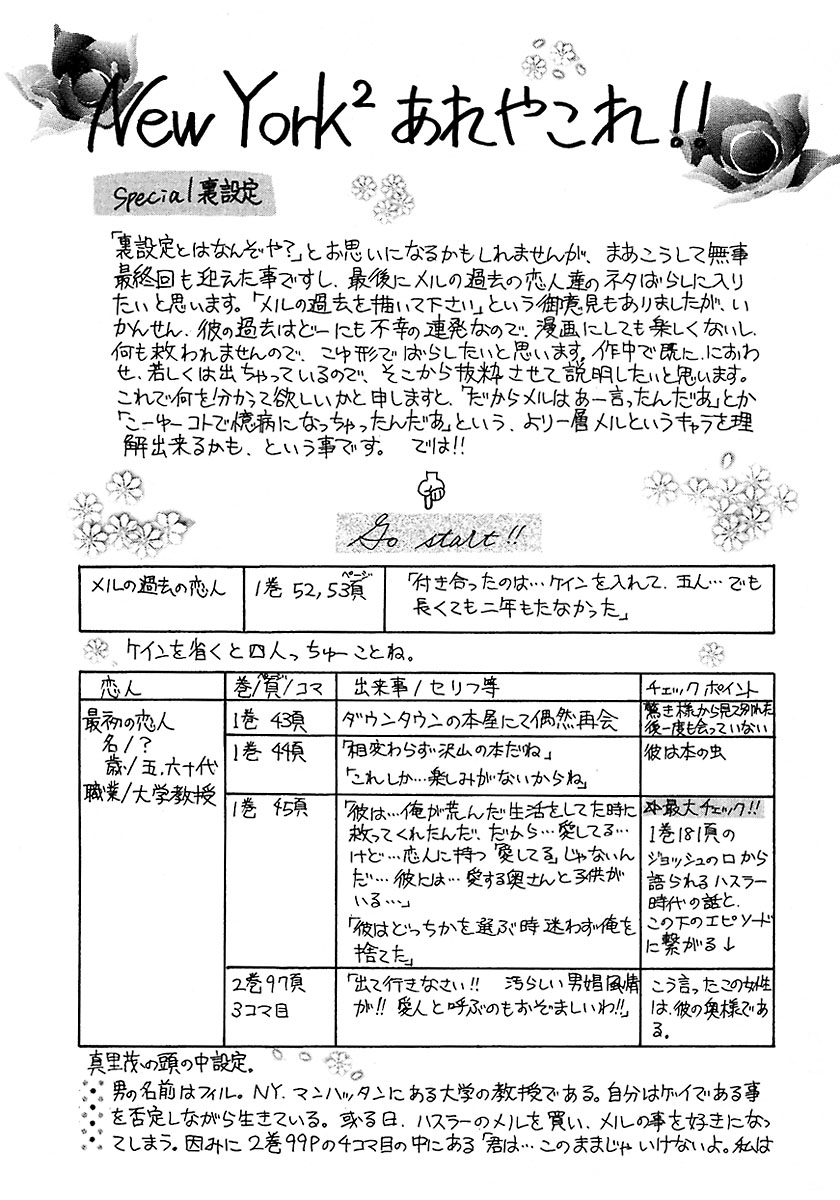 New York² あれやこれ!!
Special裏設定
「裏設定とはなんぞや?」とお思いになるかもしれませんが、まあこうして無事
最終回も迎えた事ですし、最後にメルの過去の恋人達のネタばらしに入り
たいと思います。「メルの過去を描いて下さい」という御意見もありましたが、い
かんせん、彼の過去はどーにも不幸の連発なので、漫画にしても楽しくないし、
何も救われませんので、こゆ形でばらしたいと思います。作中で既に、におわ
せ、若しくは出ちゃっているので、そこから抜粋させて説明したいと思います。
これで何を分かって欲しいかと申しますと、「だからメルはあー言ったんだあ」とか
「こーゆーコトで臆病になっちゃったんだあ」という、より一層メルというキャラを理
解出来るかも、という事です。 では!!
Go start!!
メルの過去の恋人
1巻 52,53頁
ページ
「付き合ったのは…ケインを入れて、五人…でも
長くても二年もたなかった」
ケインを省くと四人っちゅーことね。
恋人
巻/頁/コマ
ページ
出来事/セリフ等
チェックポイント
最初の恋人
名/?
歳/五、六十代
職業/大学教授
1巻 43頁
ダウンタウンの本屋にて偶然再会
驚き様から見て別れた
後一度も会っていない
1巻 44頁
「相変わらず沢山の本だね」
「これしか…楽しみがないからね」
彼は本の虫
1巻 45頁
「彼は…俺が荒んだ生活をしてた時に
救ってくれたんだ、だから…愛してる…
けど…恋人に持つ「愛してる」じゃないん
だ…彼には…愛する奥さんと子供が
いる…」
「彼はどっちかを選ぶ時迷わず俺を
捨てた」
☆最大チェック!!
1巻181頁の
ジョッシュの口から
語られるハスラー
時代の話と、
この下のエピソード
に繋がる↓
2巻97頁
3コマ目
「出て行きなさい!! 汚らしい男娼風情
が!! 愛人と呼ぶのもおぞましいわ!!」
こう言ったこの女性
は、彼の奥様であ
る。
真里茂の頭の中設定。
男の名前はフィル。NY.マンハッタンにある大学の教授である。自分はゲイである事
を否定しながら生きている。或る日、ハスラーのメルを買い、メルの事を好きになっ
てしまう。因みに2巻99Pの4コマ目の中にある「君は…このままじゃいけないよ。私は